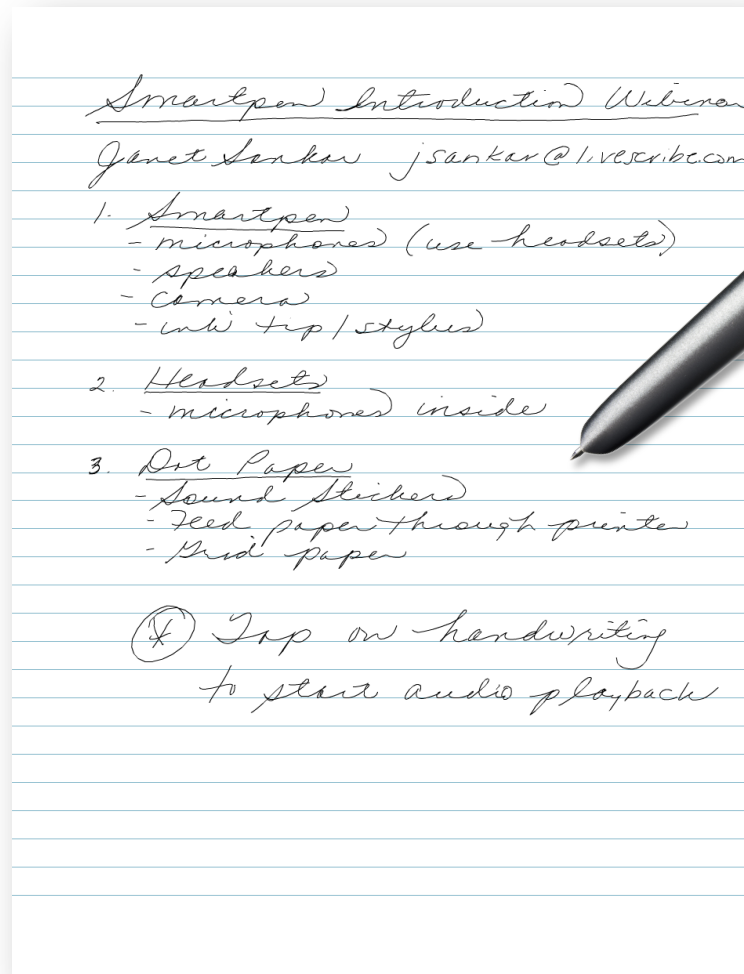 Smartpen Introduction Webinar
Janet Sankar jsankar@livescribe.com
1. Smartpen
- microphones (use headsets)
- speakers
- camera
- ink tip / stylus
2. Headsets
- microphones inside
3. Dot Paper
- Sound Stickers
- Feed paper through printer
- Grid paper
* Tap on handwriting
to start audio playback